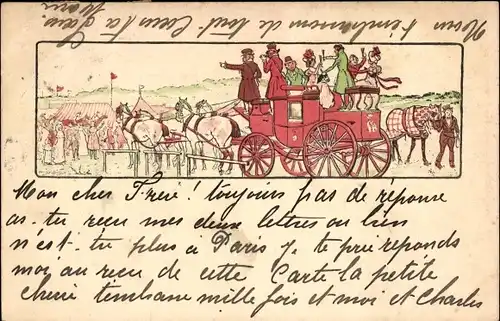 Nous t'embrassons de tout Cœur ta Sœur
Marie
Mon cher Frère! toujours pas de réponse
as-tu recu mes deux lettres ou bien
n'est-tu plus à Paris je te prie reponds
moi au recu de cette Carte la petite
cherie t'embrasse mille fois et moi et Charles